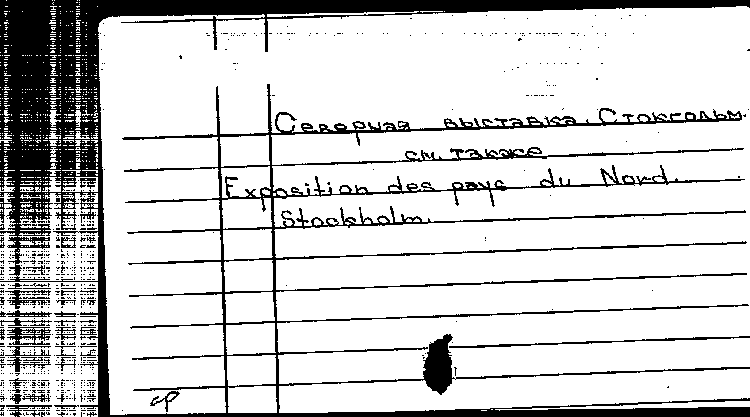 Северная выставка. Стокгольм.
см. также
Exposition des pays du Nord.
Stockholm.
ср